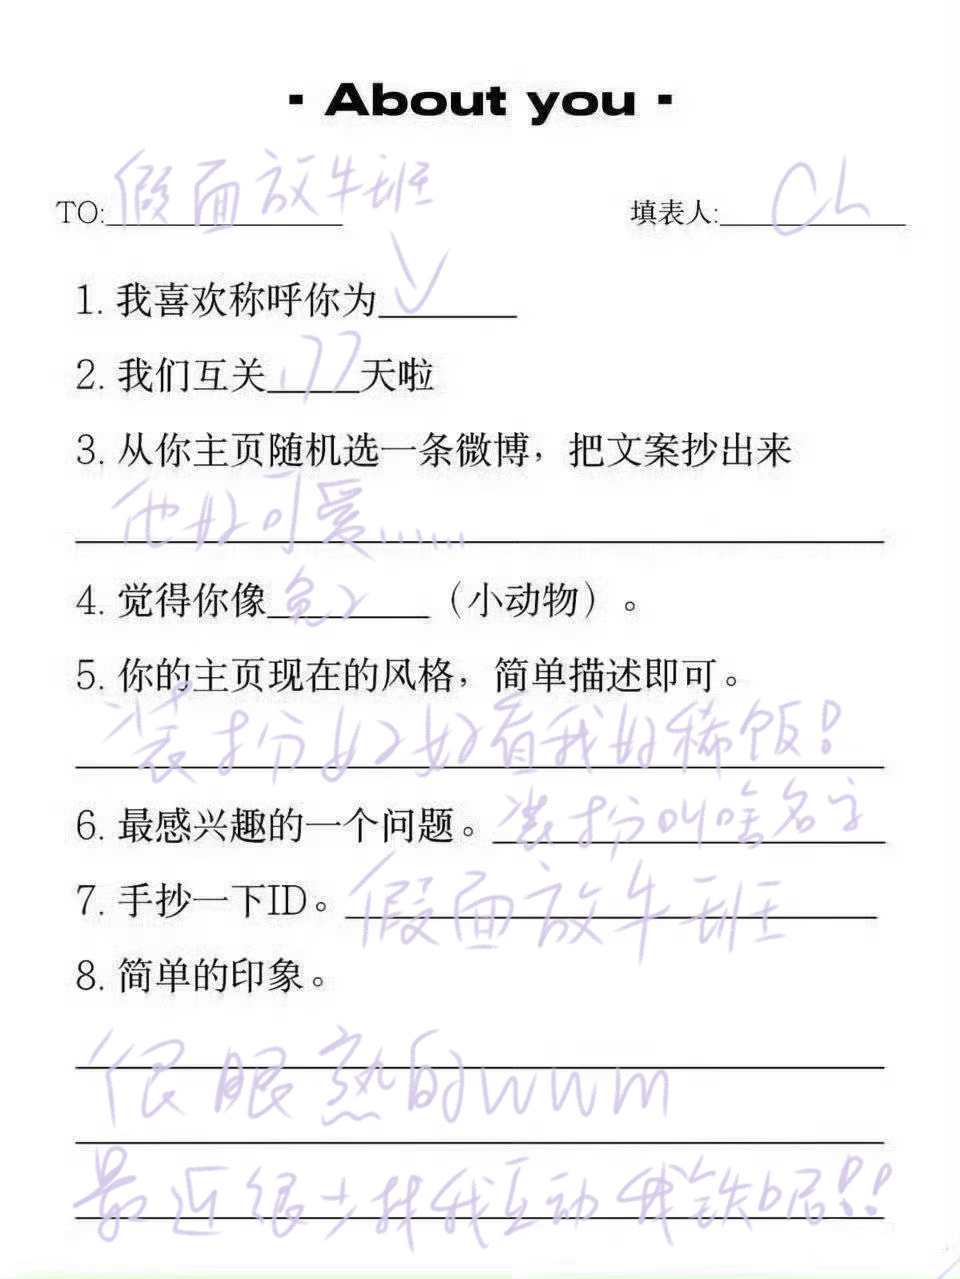 - About you -
TO: 假面放牛班 填表人: Ch
1. 我喜欢称呼你为
2. 我们互关 177 天啦
3. 从你主页随机选一条微博，把文案抄出来
他好可爱......
4. 觉得你像 兔 （小动物）。
5. 你的主页现在的风格，简单描述即可。
装扮好好看我好稀饭！
6. 最感兴趣的一个问题。装扮叫啥名字
7. 手抄一下ID。假面放牛班
8. 简单的印象。
很眼熟的wwm
最近很少找我互动 我铁昵！！